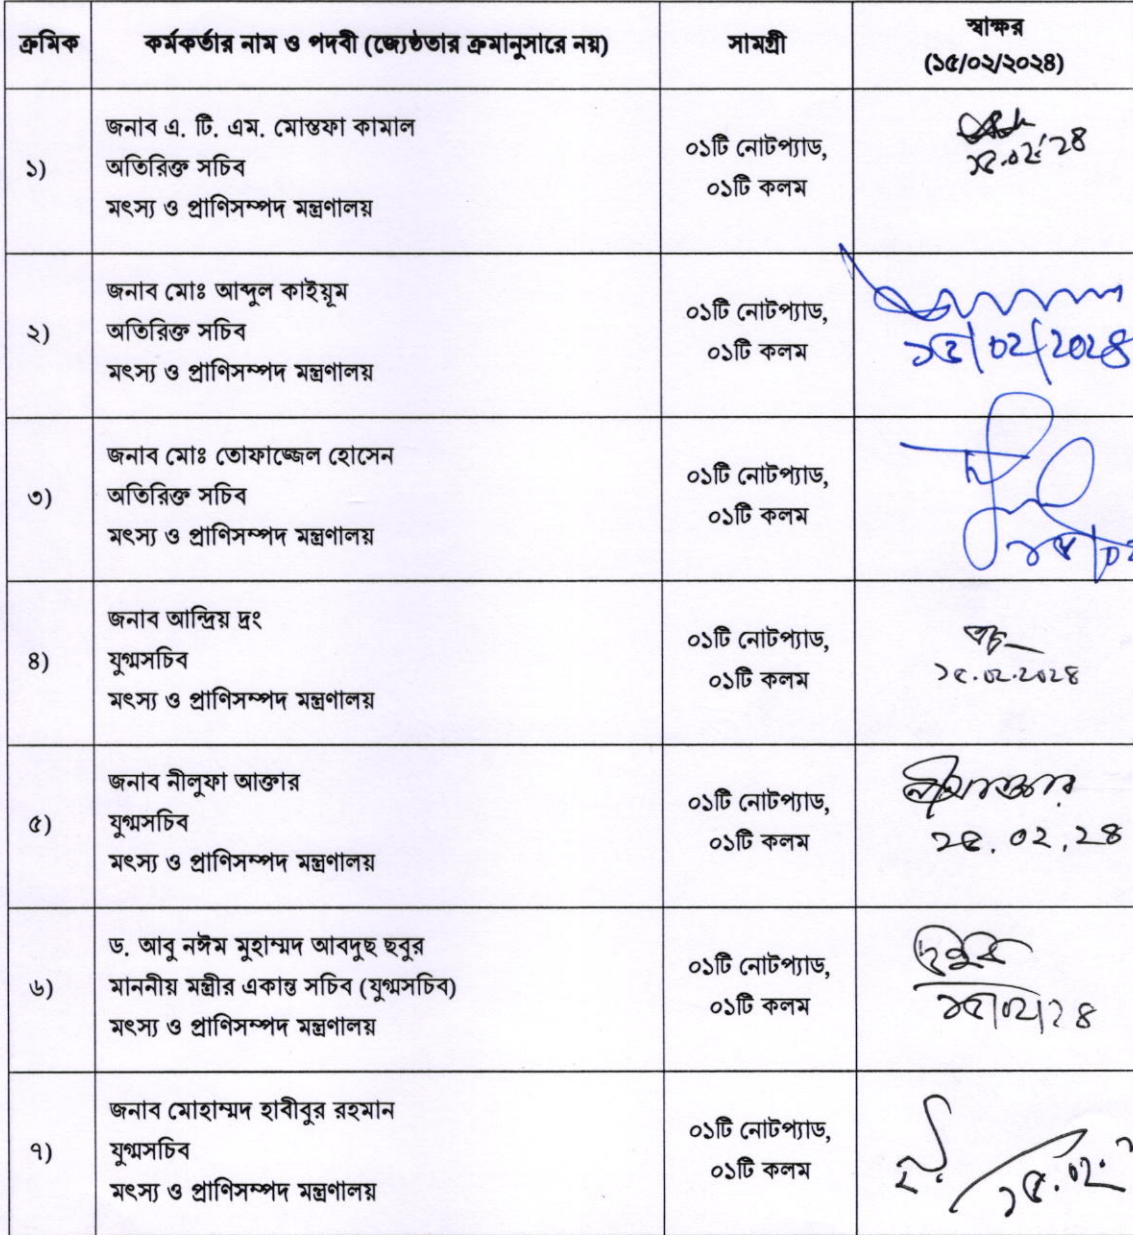 ক্রমিক কর্মকর্তার নাম ও পদবী (জ্যেষ্ঠতার ক্রমানুসারে নয়) সামগ্রী স্বাক্ষর
(১৫/০২/২০২৪)
১) জনাব এ. টি. এম. মোস্তফা কামাল
অতিরিক্ত সচিব
মৎস্য ও প্রাণিসম্পদ মন্ত্রণালয়
০১টি নোটপ্যাড,
০১টি কলম
১৫.০২.২৪
২) জনাব মোঃ আব্দুল কাইয়ূম
অতিরিক্ত সচিব
মৎস্য ও প্রাণিসম্পদ মন্ত্রণালয়
০১টি নোটপ্যাড,
০১টি কলম
১৫/০২/২০২৪
৩) জনাব মোঃ তোফাজ্জেল হোসেন
অতিরিক্ত সচিব
মৎস্য ও প্রাণিসম্পদ মন্ত্রণালয়
০১টি নোটপ্যাড,
০১টি কলম
১৫/০২
৪) জনাব আন্দ্রিয় দ্রং
যুগ্মসচিব
মৎস্য ও প্রাণিসম্পদ মন্ত্রণালয়
০১টি নোটপ্যাড,
০১টি কলম
১৫.০২.২০২৪
৫) জনাব নীলুফা আক্তার
যুগ্মসচিব
মৎস্য ও প্রাণিসম্পদ মন্ত্রণালয়
০১টি নোটপ্যাড,
০১টি কলম
১৫.০২.২৪
৬) ড. আবু নঈম মুহাম্মদ আবদুছ ছবুর
মাননীয় মন্ত্রীর একান্ত সচিব (যুগ্মসচিব)
মৎস্য ও প্রাণিসম্পদ মন্ত্রণালয়
০১টি নোটপ্যাড,
০১টি কলম
ছবুর
১৫/০২/২৪
৭) জনাব মোহাম্মদ হাবীবুর রহমান
যুগ্মসচিব
মৎস্য ও প্রাণিসম্পদ মন্ত্রণালয়
০১টি নোটপ্যাড,
০১টি কলম
১৫.০২.